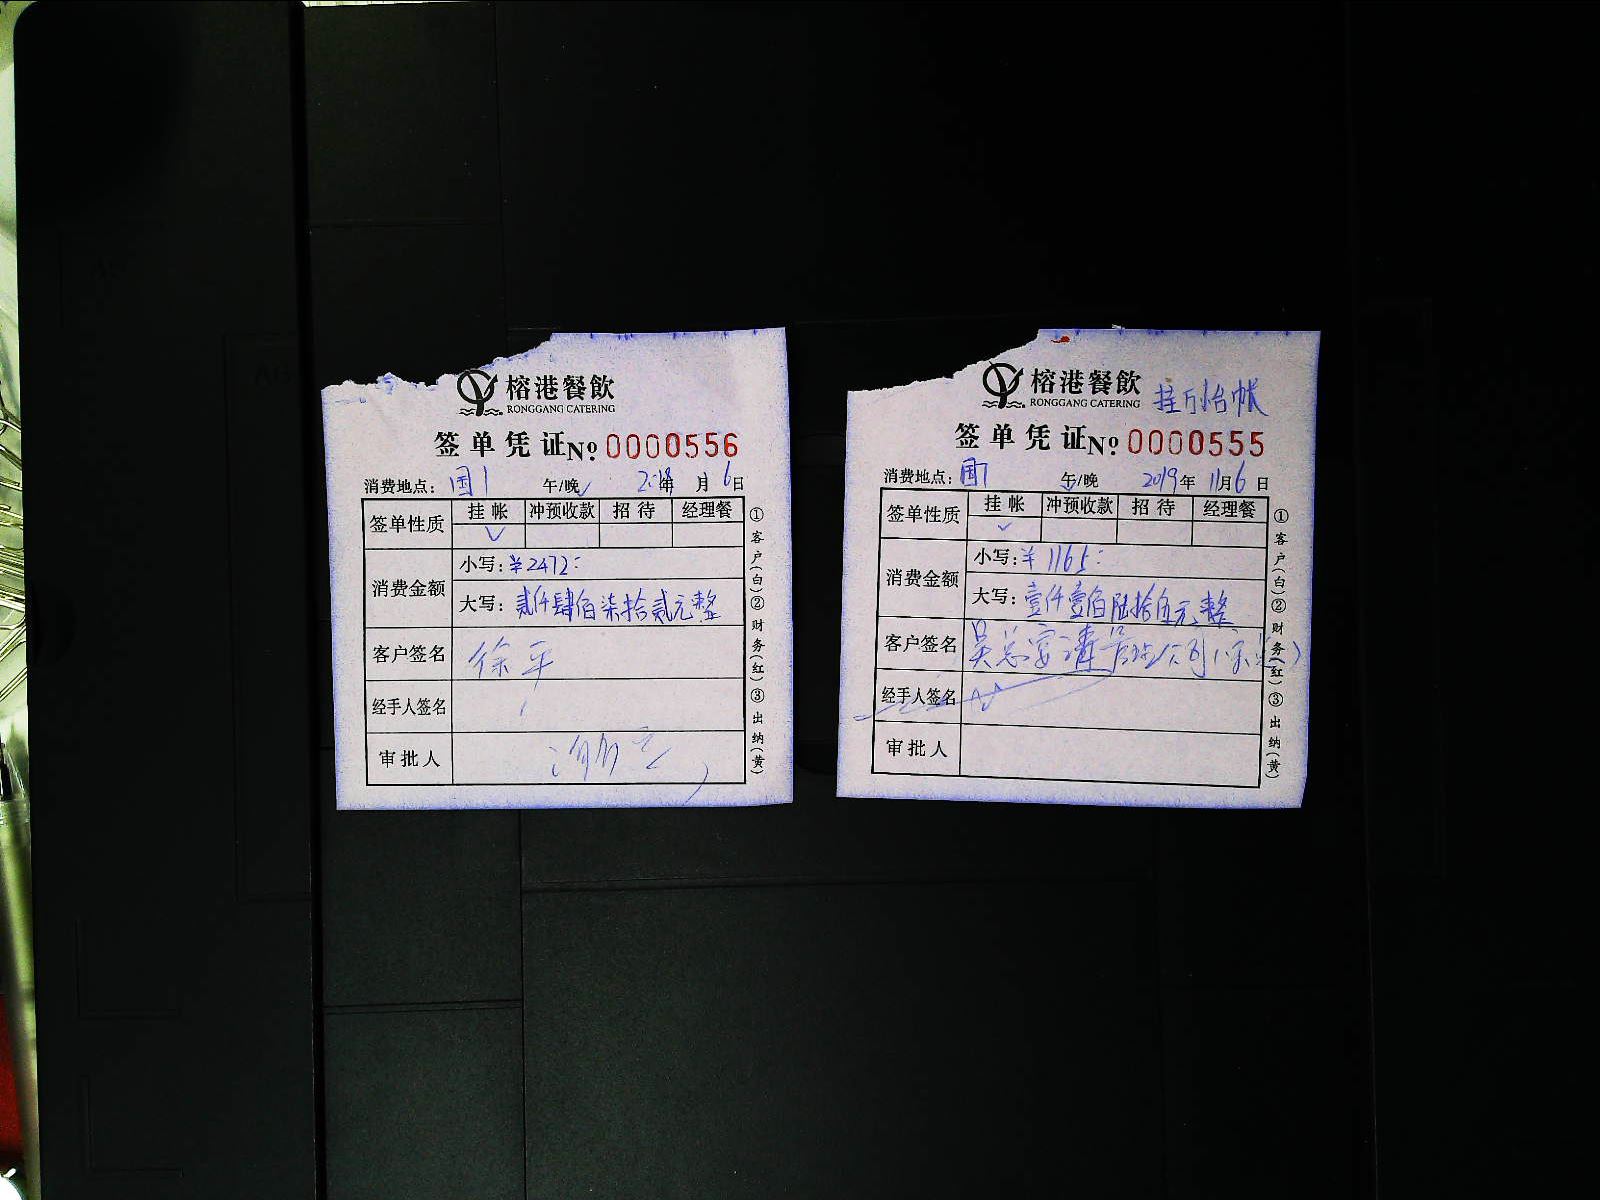 榕港餐飲
RONGGANG CATERING
签单凭证 No 0000556
消费地点: 国1 午/晚 年 月 6日
签单性质 挂帐 冲预收款 招待 经理餐
消费金额
小写: ¥2472:
大写: 贰仟肆佰柒拾贰元整
客户签名 徐平
经手人签名
审批人
①客户(白)②财务(红)③出纳(黄)
榕港餐飲
RONGGANG CATERING
签单凭证 No 0000555
消费地点: 国 午/晚 2019年 11月6日
签单性质 挂帐 冲预收款 招待 经理餐
消费金额
小写: ¥1165:
大写: 壹仟壹佰陆拾伍元整
客户签名 吴总宴请
经手人签名
审批人
①客户(白)②财务(红)③出纳(黄)